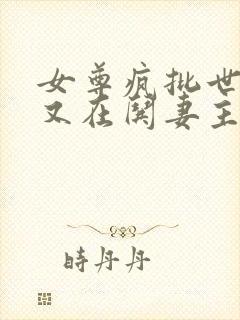 女尊疯批世
又在鬨妻主
時丹丹